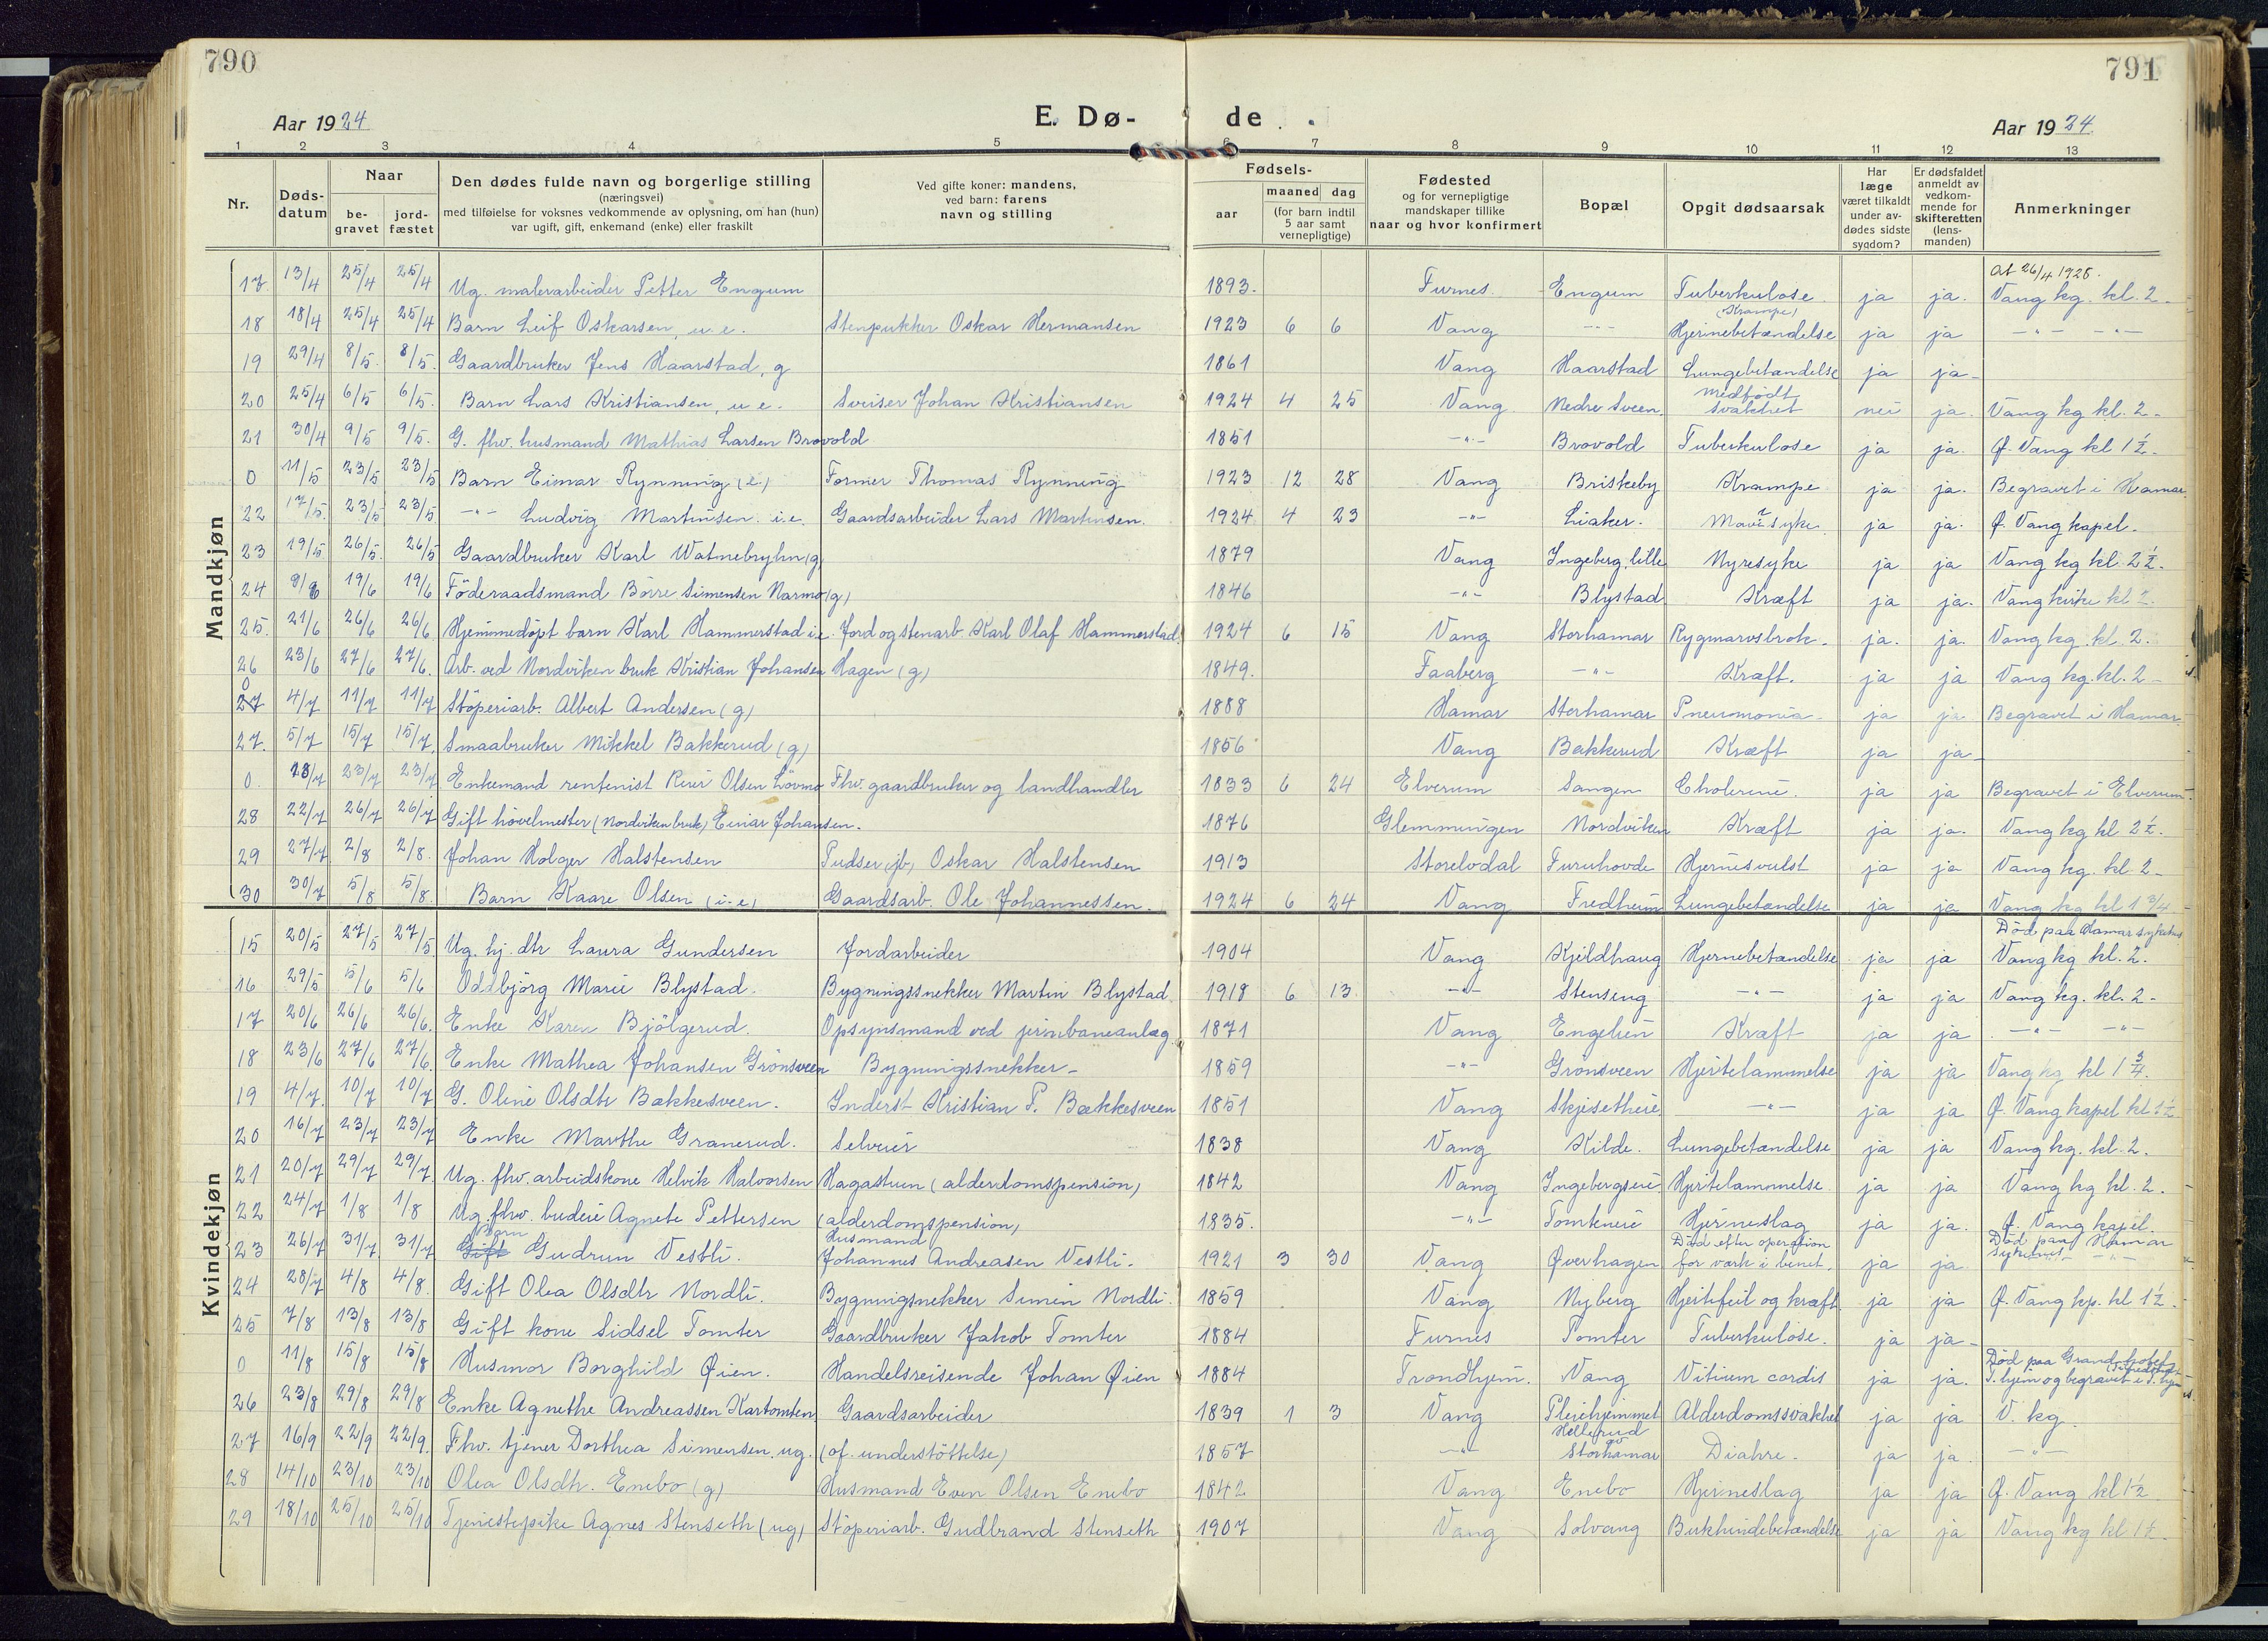 790
791
Aar 1924
E. Dø-
de.
Aar 1924
1 2 3 4 5 6 7 8 9 10 11 12 13
Nr. Dødsdatum Naar begravet jordfæstet
Den dødes fulde navn og borgerlige stilling
(næringsvei)
med tilføielse for voksnes vedkommende av oplysning, om han (hun)
var ugift, gift, enkemand (enke) eller fraskilt
Ved gifte koner: mandens,
ved barn: farens
navn og stilling
Fødsels-
aar maaned dag
(for barn indtil
5 aar samt
vernepligtige)
Fødested
og for vernepligtige
mandskaper tillike
naar og hvor konfirmert
Bopæl
Opgit dødsaarsak
Har
læge
været tilkaldt
under av-
dødes sidste
sygdom?
Er dødsfaldet
anmeldt av
vedkom-
mende for
skifteretten
(lens-
manden)
Anmerkninger
Mandkjøn
At 26/4 1925.
17 13/4 25/4 25/4 Ug. malerarbeider Petter Engum 1893. Furnes Engum Tuberkulose ja ja. Vang kg. kl. 2
18 18/4 25/4 25/4 Barn Leif Oskarsen, u.e. Stenpukker Oskar Hermansen 1923 6 6 Vang -"- (Krampe) Hjernebetændelse ja ja -"- -"-
19 29/4 8/5 8/5. Gaardbruker Jens Haarstad, g 1861 Vang Haarstad Lungebetændelse ja ja
20 25/4 6/5 6/5. Barn Lars Kristiansen, u e. Sveiser Johan Kristiansen 1924 4 25 Vang Nedre Sveen medfødt svakhet nei ja. Vang kg kl. 2
21 30/4 9/5 9/5. G. fhv. husmand Mathias Larsen Brovold 1851 -"- Brovold Tuberkulose ja ja. Ø. Vang kl 1½
0 11/5 23/5 23/5 Barn Eimar Rynning (e.) Former Thomas Rynning 1923 12 28 Vang Briskeby Krampe ja ja. Begravet i Hamar
22 17/5. 23/5 23/5 -"- Ludvig Martinsen i.e. Gaardsarbeider Lars Martinsen. 1924 4 23 -"- Liaker. Mavesyke ja ja. Ø. Vang kapel.
23 19/5 26/5. 26/5 Gaardbruker Karl Watnebryhn (g) 1879 Vang Ingeberg, lille Nyresyke ja ja Vang kg kl. 2½.
24 9/6 19/6 19/6 Föderaadsmand Börre Simensen Narmo (g) 1846 -"- Blystad Kræft ja ja. Vang kirke kl 2.
25. 21/6 26/6 26/6. Hjemmedöpt barn Karl Hammerstad i.e. Jord og stenarb. Karl Olaf Hammerstad. 1924 6 15 Vang Storhamar Rygmarvsbrok. ja. ja. Vang kg. kl. 2.
26 23/6 27/6 27/6. Arb. ved Nordviken bruk Kristian Johansen Hagen (g) 1849. Faaberg -"- Kræft. ja ja Vang kg. kl. 2
0 4/7 11/7 11/7 Stöperiarb. Albert Andersen (g) 1888 Hamar Storhamar Pneumonia ja ja. Begravet i Hamar.
27. 5/7 15/7 15/7. Smaabruker Mikkel Bakkerud (g) 1856 Vang Bakkerud Kræft ja ja
0. 18/7 23/7 23/7 Enkemand rentenist Reier Olsen Lövmo Fhv. gaardbruker og landhandler 1833 6 24 Elverum Sangen Cholerine. ja ja Begravet i Elverum.
28 22/7 26/7 26/7 Gift hövelmester (Nordviken bruk) Einar Johansen. 1876 Glemmingen Nordviken Kræft ja ja. Vang kg kl 2½.
29 27/7 2/8 2/8. Johan Holger Halstensen Pudser (jb) Oskar Halstensen 1913 Storelvdal Furuhovde Hjernesvulst ja ja Vang kg. kl. 2
30 30/7 5/8 5/8. Barn Kaare Olsen (i.e) Gaardsarb. Ole Johannessen. 1924 6 24 Vang Fredheim Lungebetændelse ja ja Vang kg kl 1¾
Kvindekjøn
Død paa Hamar sykehus
15 20/5 27/5 27/5 Ug. hj. dtr Laura Gundersen Jordarbeider 1904 Vang Kjeldhaug Hjernebetændelse ja ja Vang kg kl. 2.
16 29/5 5/6 5/6 Oddbjörg Marie Blystad. Bygningssnekker Martin Blystad 1918 6 13 -"- Stenseng -"- ja ja Vang kg. kl. 2
17 20/6 26/6 26/6. Enke Karen Bjölgerud. Opsynsmand ved jernbaneanlæg. 1871 Vang Engelien Kræft ja ja -"- -"-
18 23/6 27/6 27/6 Enke Mathea Johansen Grönsveen Bygningssnekker 1859 -"- Grönsveen Hjertelammelse ja ja Vang kg kl 1¾.
19 4/7. 10/7 10/7 G. Oline Olsdtr Bækkesveen. Inderst Kristian P. Bækkesveen 1851 Vang Skjesetheie -"- ja ja Ø. Vang kapel kl 1½
20 16/7 23/7 23/7 Enke Marthe Granerud. Selveier 1838 Vang Kilde. Lungebetændelse ja ja Vang kg. kl. 2.
21 20/7 29/7 29/7 Ug. fhv. arbeidskone Helvik Halvorsen Hagastuen (alderdomspension) 1842 Vang Ingebergseie Hjertelammelse ja ja Vang kg kl. 2.
22 24/7 1/8 1/8 Ug. fhv. budeie Agnete Pettersen (alderdomspension) 1835. -"- Tomteneie Hjerneslag ja ja. Ø. Vang kapel.
23 26/7 31/7 31/7 Gift Barn Gudrun Vestli. Husmand Johannes Andreasen Vestli. 1921 3 30 Vang Øverhagen Död efter operation for værk i benet. ja ja Död paa Hamar sykehus -"-
24 28/7 4/8 4/8. Gift Olea Olsdtr Nordli. Bygningsnekker Simen Nordli. 1859 Vang Nyberg Hjertefeil og kræft ja ja Ø. Vang kp. kl 1½.
25 7/8 13/8 13/8 Gift kone Sidsel Tomter Gaardbruker Jakob Tomter 1884 Furnes Tomter Tuberkulose. ja ja
0 11/8 15/8 15/8 Husmor Borghild Øien. Handelsreisende Johan Øien 1884 Trondhjem. Vang Vitium cordis ja ja. Död paa Grand hotel T.hjem og begravet i T.hjem
26 23/8 29/8 29/8 Enke Agnethe Andreassen Kartomten Gaardsarbeider 1839 1 3 Vang Pleiehjemmet Alderdomssvakhet ja ja V. kg.
27 16/9 22/9 22/9. Fhv. tjener Dorthea Simensen. ug. (of. understöttelse) 1857 -"- Hellerud av Storhamar Diahre. ja ja. -"-
28 14/10 23/10 23/10 Olea Olsdtr. Enebo (g) Husmand Even Olsen Enebo 1842 Vang Enebo Hjerneslag ja ja Ø. Vang kl 1½
29 18/10 25/10 25/10 Tjenestepike Agnes Stenseth (ug) Stöperiarb. Gudbrand Stenseth 1907 Vang Solvang Bukhindebetændelse ja ja Vang kg kl 1½.